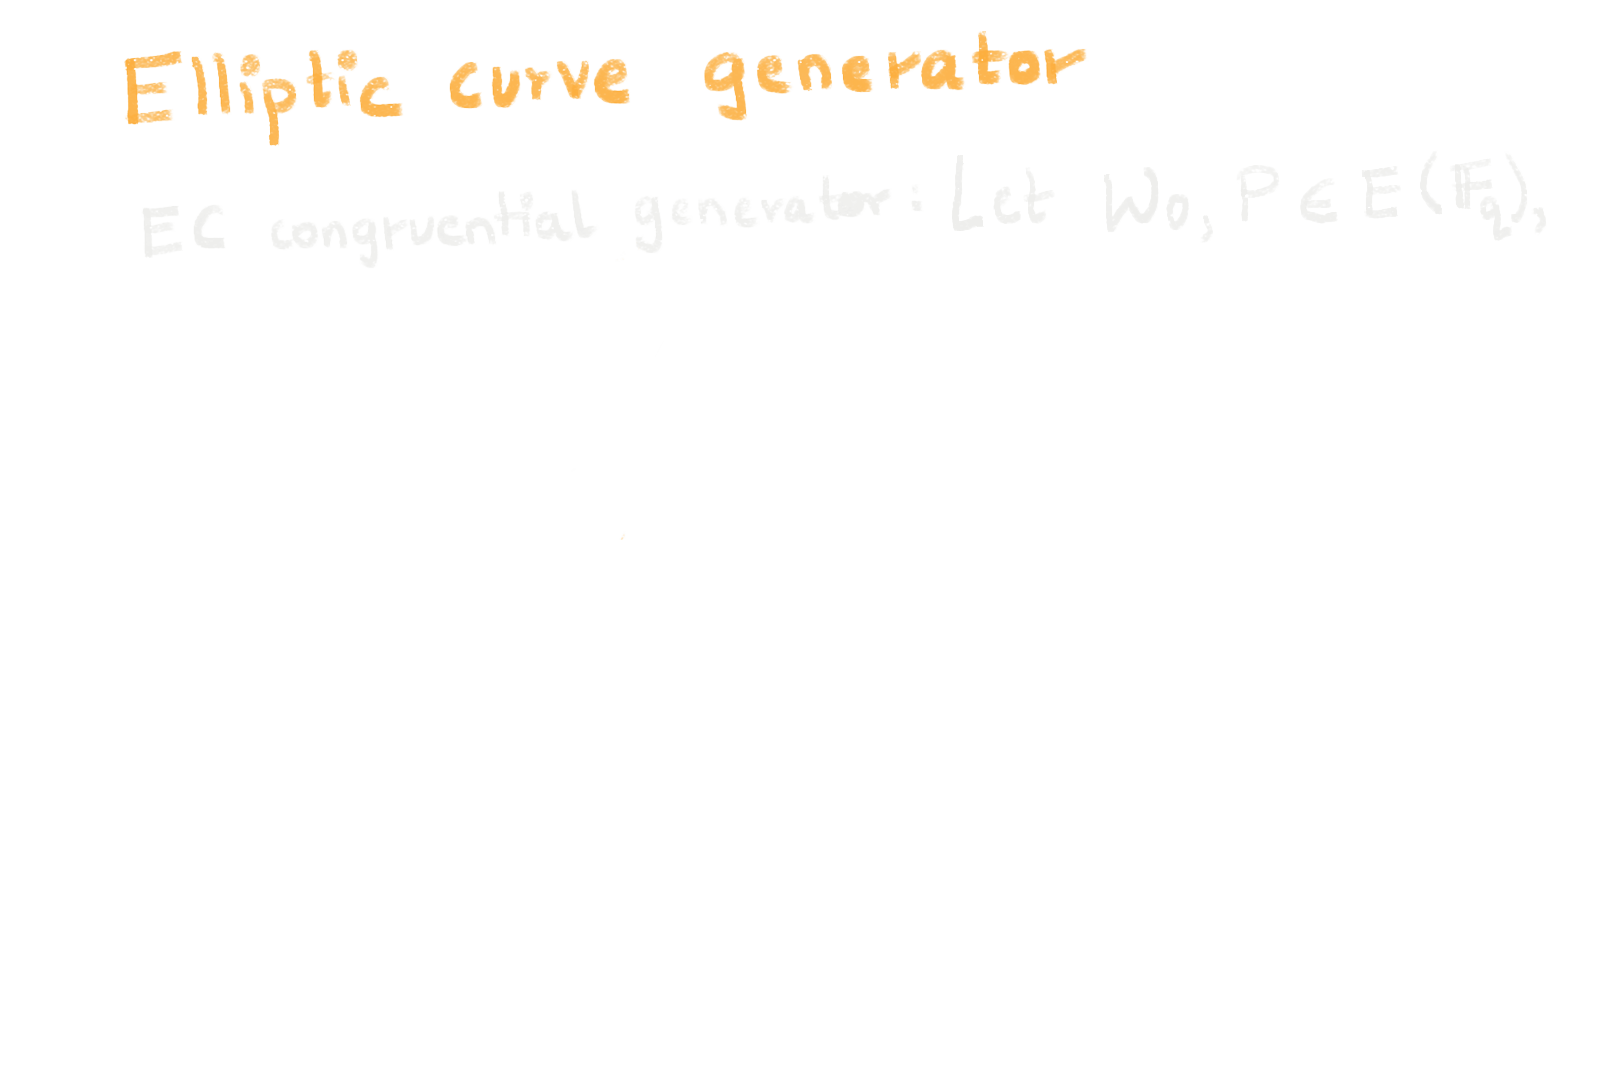 Elliptic curve generator
EC congruential generator: Let W₀, P ∈ E(𝔽q),